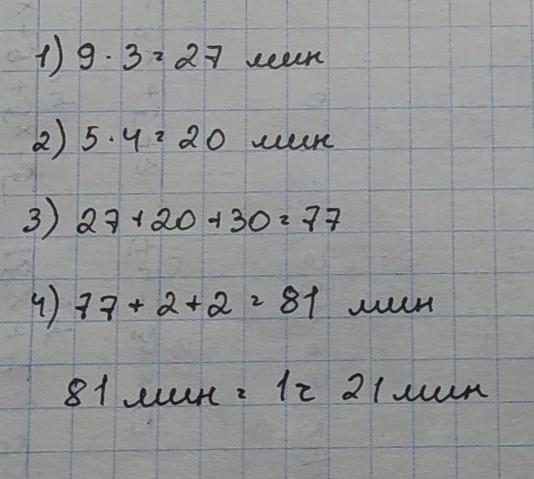 1) 9 · 3 = 27 мин
2) 5 · 4 = 20 мин
3) 27 + 20 + 30 = 77
4) 77 + 2 + 2 = 81 мин
81 мин = 1 ч 21 мин